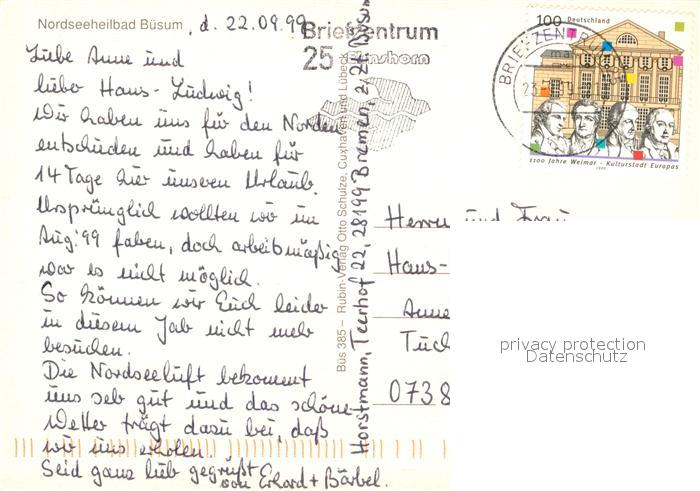 Nordseeheilbad Büsum, d. 22.09.99
Liebe Anne und
lieber Hans-Ludwig!
Wir haben uns für den Norden
entschieden und haben für
14 Tage hier unseren Urlaub.
Ursprünglich wollten wir im
Aug. '99 fahren, doch arbeitsmäßig
war es nicht möglich.
So können wir Euch leider
in diesem Jahr nicht mehr
besuchen.
Die Nordseeluft bekommt
uns sehr gut und das schöne
Wetter trägt dazu bei, daß
wir uns erholen.
Seid ganz lieb gegrüßt
von Erhard + Bärbel.
Büs 385 – Rubin-Verlag Otto Schulze, Cuxhaven und Lübeck
Horstmann, Teerhof 22, 28199 Bremen, z. Zt. Büsum
Briefzentrum
25 Elmshorn
BRIEFZENTRUM
100 Deutschland
1100 Jahre Weimar - Kulturstadt Europas
1999
Herrn und Frau
Hans-
Anne
Tuch
0738
privacy protection
Datenschutz